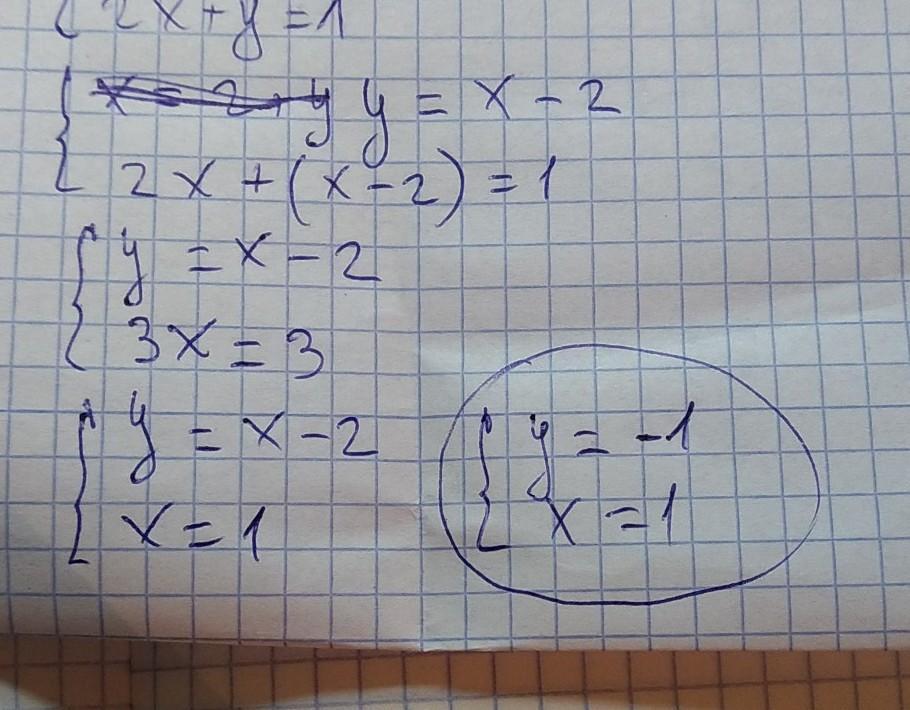 { 2x+y=1
{ y = x - 2
2x + (x-2) = 1
{ y = x - 2
3x = 3
{ y = x - 2
x = 1
{ y = -1
x = 1